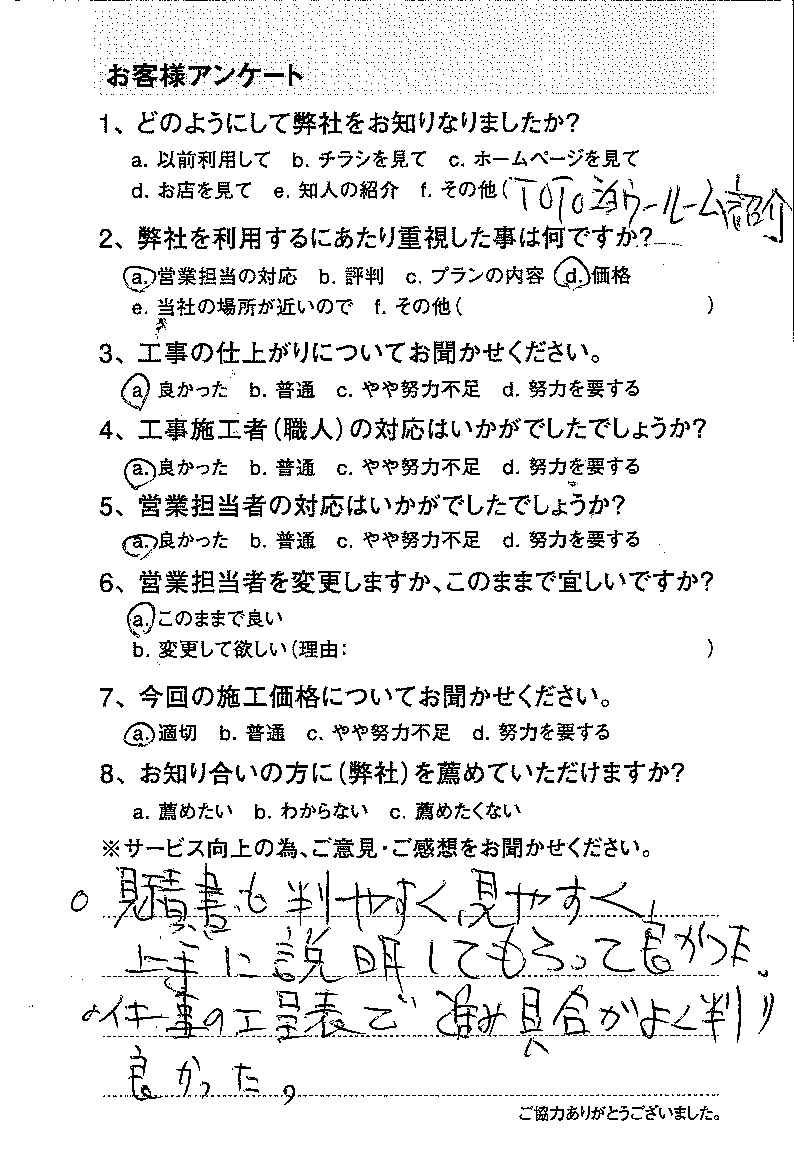 お客様アンケート
1、どのようにして弊社をお知りなりましたか?
a. 以前利用して b. チラシを見て c. ホームページを見て
d. お店を見て e. 知人の紹介 f. その他( TOTOショウールーム紹介
2、弊社を利用するにあたり重視した事は何ですか?
a. 営業担当の対応 b. 評判 c. プランの内容 d. 価格
e. 当社の場所が近いので f. その他( )
3、工事の仕上がりについてお聞かせください。
a 良かった b. 普通 c. やや努力不足 d. 努力を要する
4、工事施工者(職人)の対応はいかがでしたでしょうか?
a. 良かった b. 普通 c. やや努力不足 d. 努力を要する
5、営業担当者の対応はいかがでしたでしょうか?
a. 良かった b. 普通 c. やや努力不足 d. 努力を要する
6、営業担当者を変更しますか、このままで宜しいですか?
a. このままで良い
b. 変更して欲しい(理由: )
7、今回の施工価格についてお聞かせください。
a. 適切 b. 普通 c. やや努力不足 d. 努力を要する
8、お知り合いの方に(弊社)を薦めていただけますか?
a. 薦めたい b. わからない c. 薦めたくない
※サービス向上の為、ご意見・ご感想をお聞かせください。
○ 見積書も判やすく、見やすく、
上手に説明してもらって良かった。
○仕事の工程表で進み具合がよく判り
良かった。
ご協力ありがとうございました。